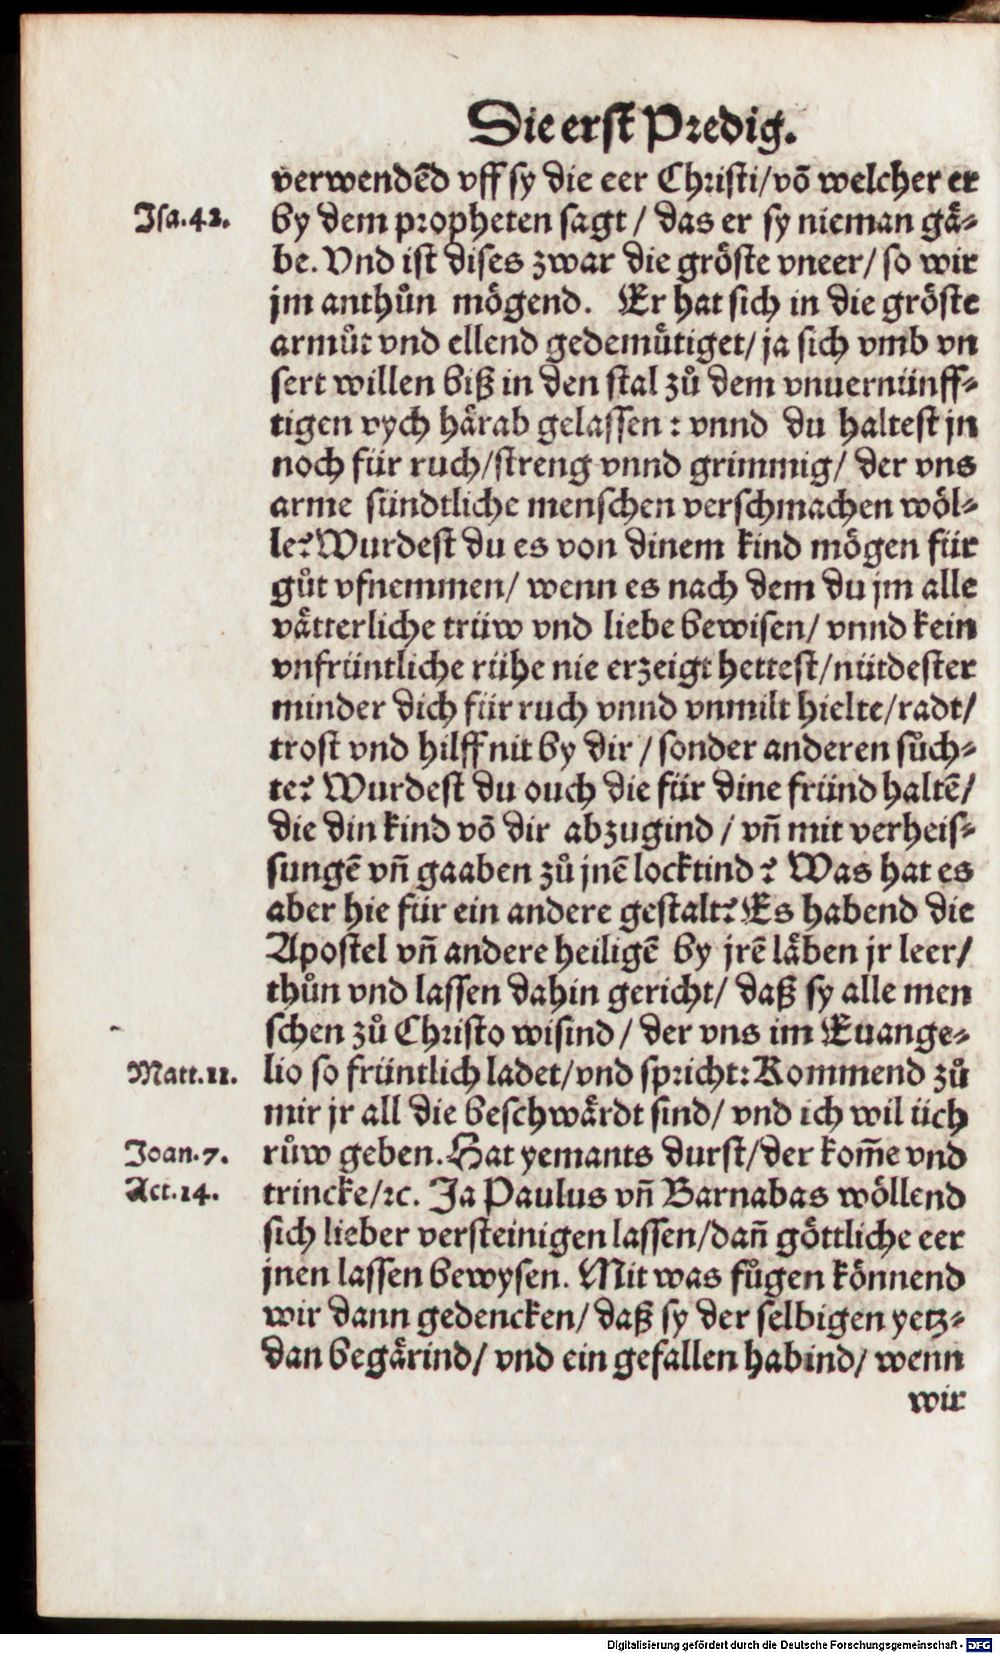 Die erst Predig.
verwendēd vff sy die eer Christi/vō welcher er
Isa.42.
by dem propheten sagt / das er sy nieman gaͤ-
be. Vnd ist dises zwar die groͤste vneer/ so wir
jm anthuͦn moͤgend. Er hat sich in die groͤste
armuͦt vnd ellend gedemuͤtiget/ ja sich vmb vn
sert willen biß in den stal zuͦ dem vnuernünff-
tigen vych haͤrab gelassen : vnnd du haltest jn
noch für ruch/streng vnnd grimmig/ der vns
arme sündtliche menschen verschmachen woͤl-
le? Wurdest du es von dinem kind moͤgen für
guͦt vfnemmen/ wenn es nach dem du jm alle
vaͤtterliche trüw vnd liebe bewisen/ vnnd kein
vnfrüntliche rühe nie erzeigt hettest/nütdester
minder dich für ruch vnnd vnmilt hielte/radt/
trost vnd hilff nit by dir / sonder anderen suͦch-
te? Wurdest du ouch die für dine fründ haltē/
die din kind vō dir abzugind / vn̄ mit verheis-
sungē vn̄ gaaben zuͦ jnē locktind ? Was hat es
aber hie für ein andere gestalt? Es habend die
Apostel vn̄ andere heiligē by jrē laͤben jr leer/
thuͦn vnd lassen dahin gericht/ daß sy alle men
schen zuͦ Christo wisind / der vns im Euange-
Matt.11.
lio so früntlich ladet/vnd spricht: Kommend zuͦ
mir jr all die beschwaͤrdt sind/ vnd ich wil üch
Joan.7.
ruͦw geben. Hat yemants durst/der kom̄e vnd
Act.14.
trincke/ꝛc. Ja Paulus vn̄ Barnabas woͤllend
sich lieber versteinigen lassen/dan̄ goͤttliche eer
jnen lassen bewysen. Mit was fuͦgen koͤnnend
wir dann gedencken/ daß sy der selbigen yetz-
dan begaͤrind/ vnd ein gefallen habind/ wenn
wir
Digitalisierung gefördert durch die Deutsche Forschungsgemeinschaft - DFG